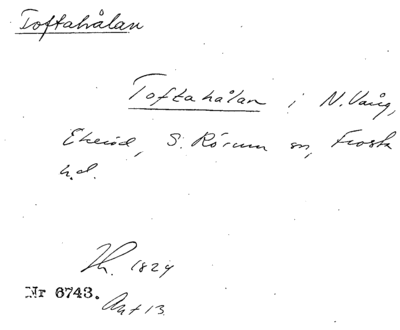 Toftahålan
Toftahålan i N. Vång,
Ekeröd, S. Rörum sn, Frosta
h.d.
Th. 1824
Nr 6743.
Akt 13